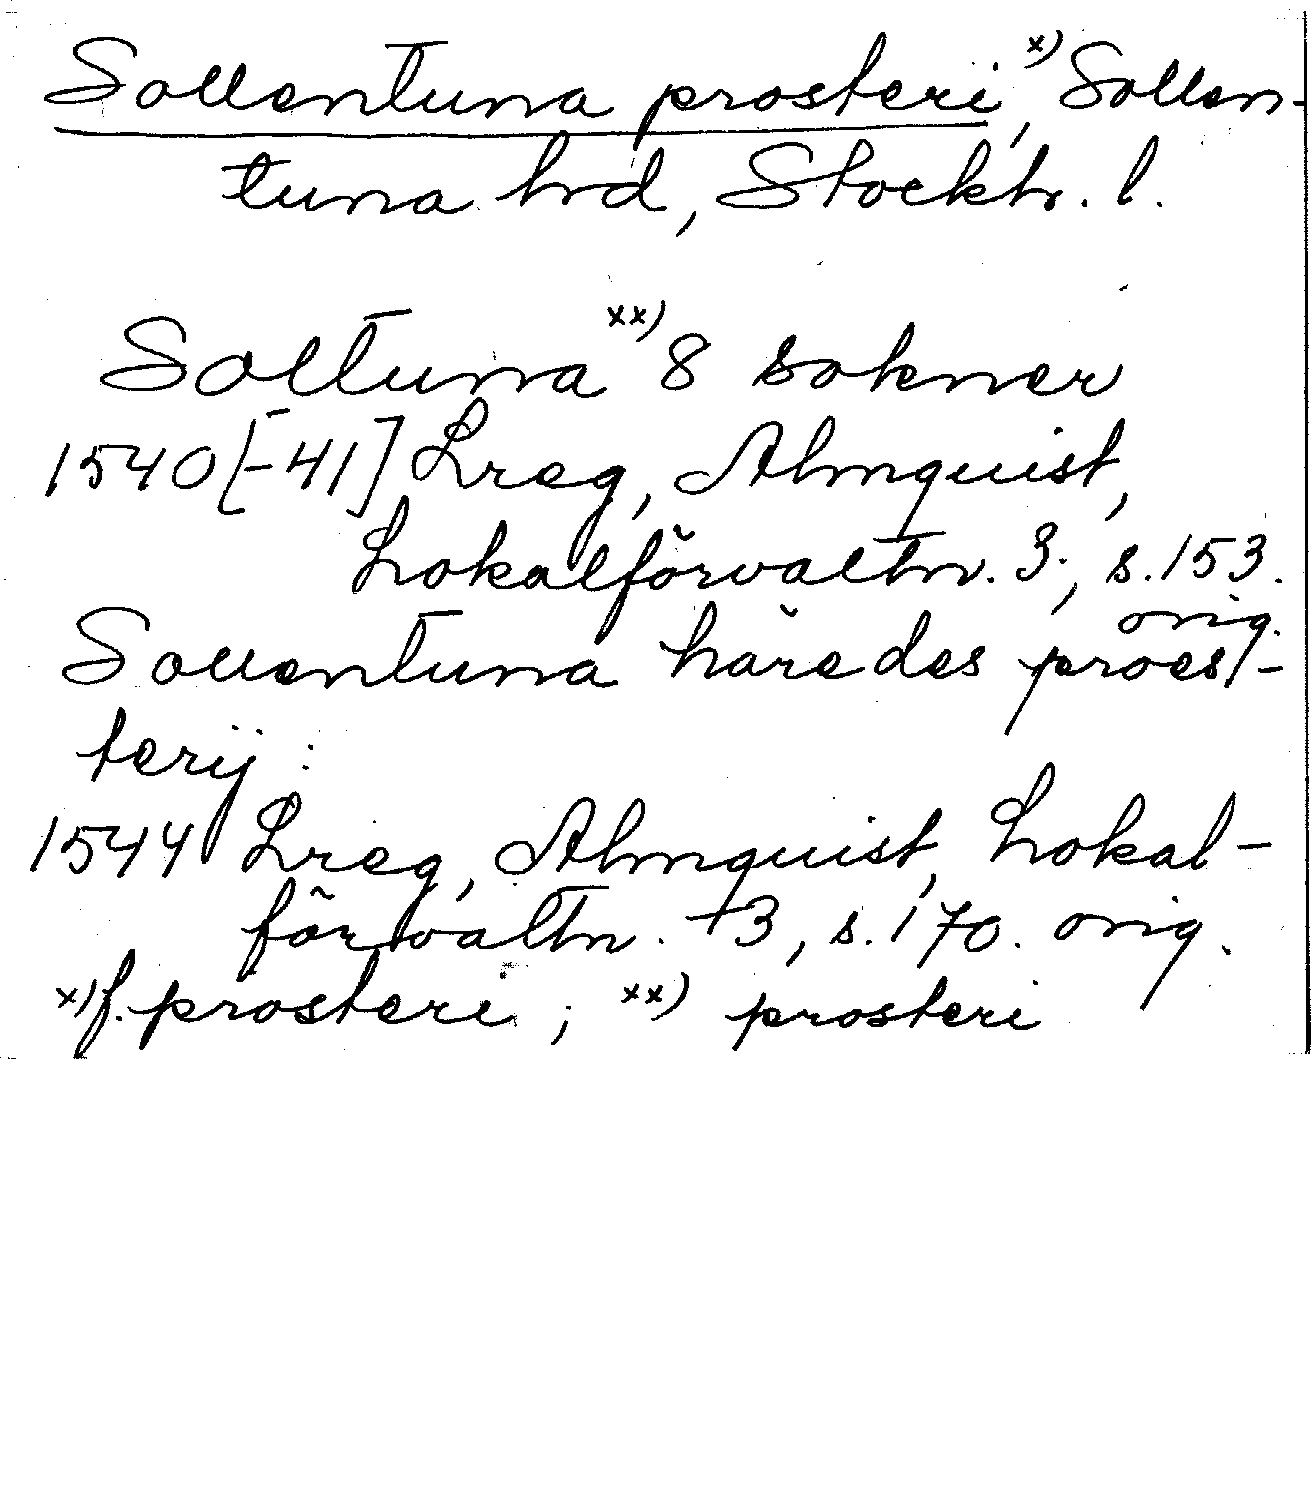 Sollentuna prosteri, x) Sollen-
tuna hrd, Stockh. l.
Solltuna xx) 8 sokner
1540[-41] Lreg, Almquist,
Lokalförvaltn. 3:, s. 153.
orig.
Sollentuna häredes proest-
terij :
1544 Lreg, Almquist, Lokal-
förvaltn. 3, s. 170. orig.
x) f. prosteri ; xx) prosteri